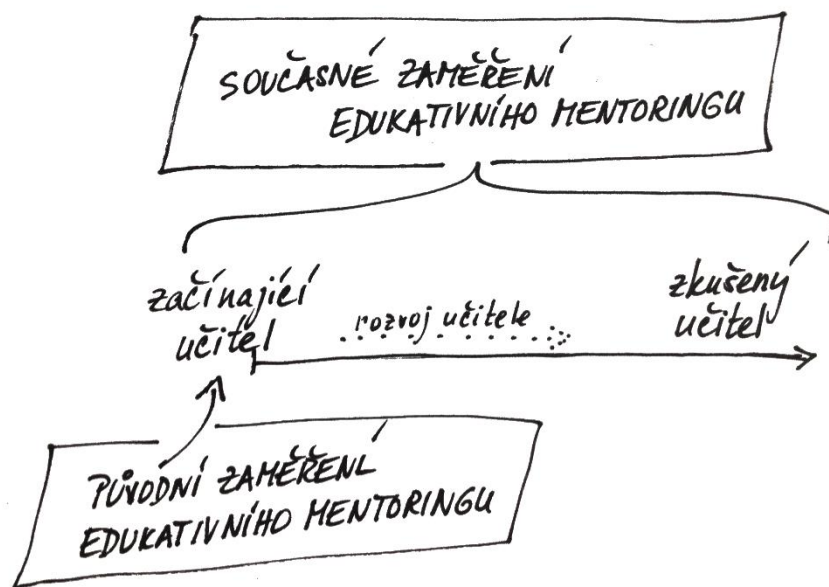 SOUČASNÉ ZAMĚŘENÍ
EDUKATIVNÍHO MENTORINGU
začínající
učitel
rozvoj učitele
zkušený
učitel
PŮVODNÍ ZAMĚŘENÍ
EDUKATIVNÍHO MENTORINGU